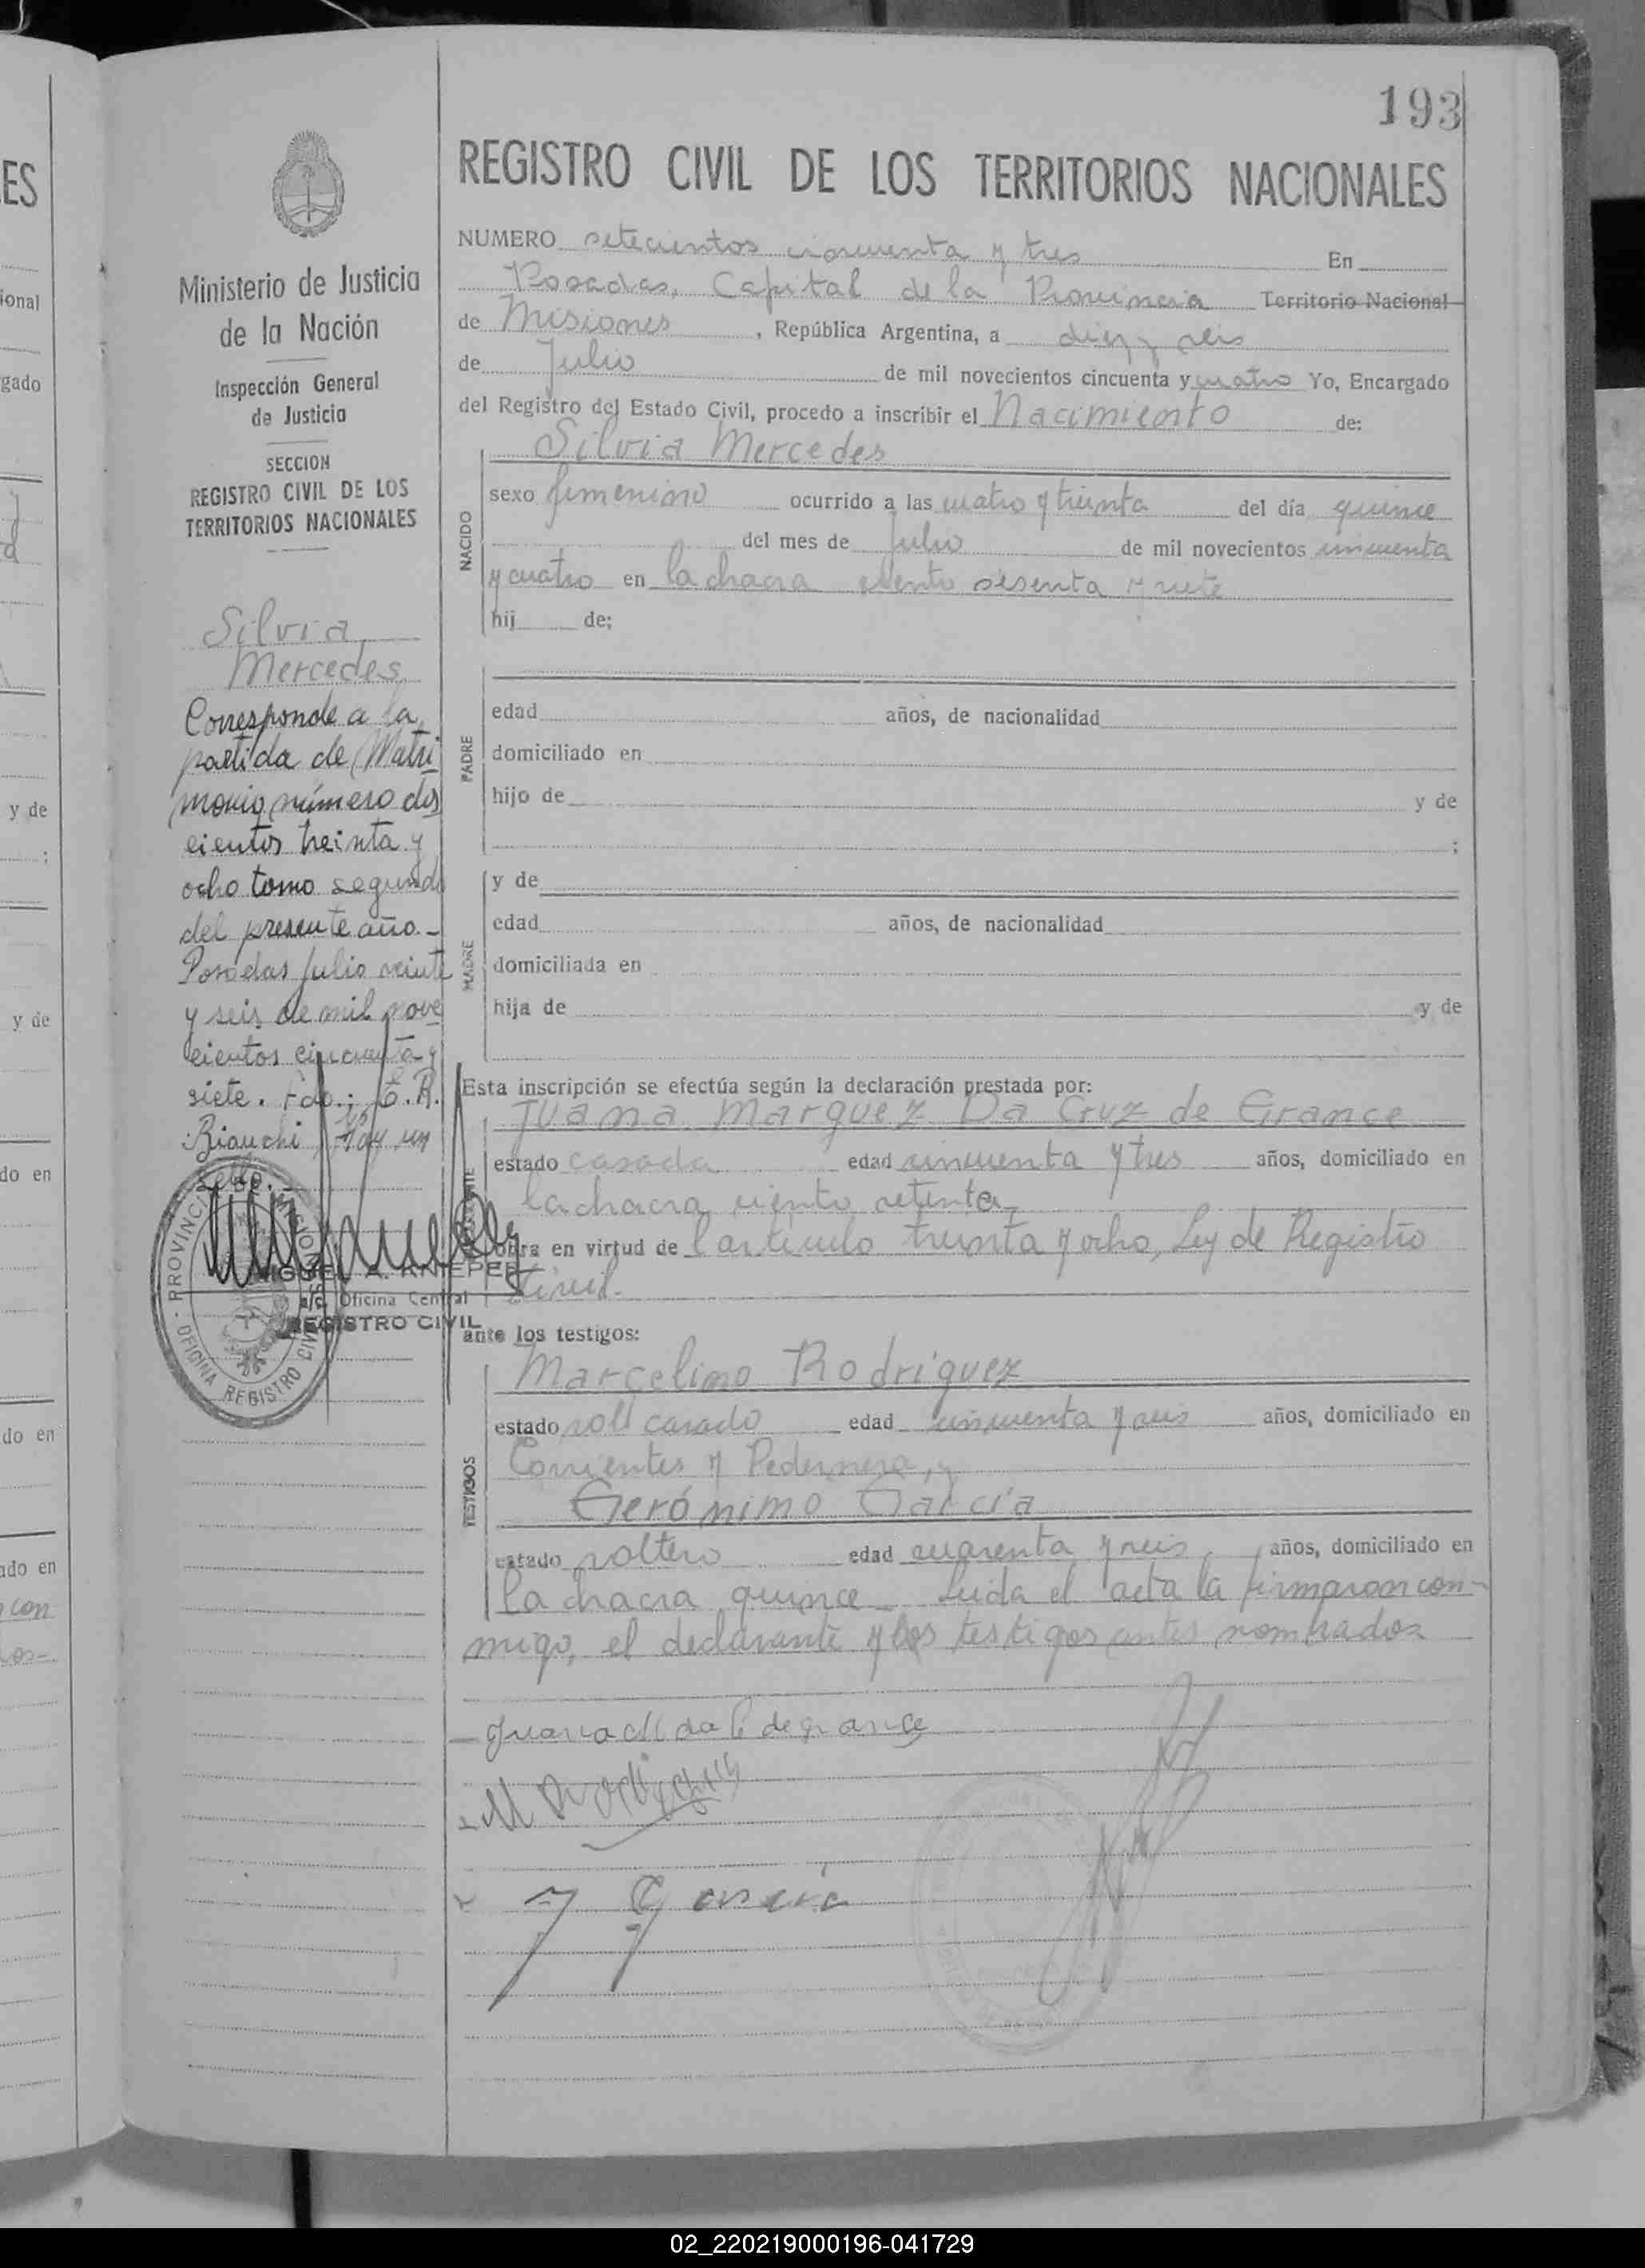 193
REGISTRO CIVIL DE LOS TERRITORIOS NACIONALES
NUMERO setecientos cincuenta y tres En
Posadas, Capital de la Provincia Territorio Nacional
de Misiones, República Argentina, a diez y seis
de Julio de mil novecientos cincuenta y cuatro Yo, Encargado
del Registro del Estado Civil, procedo a inscribir el Nacimiento de:
Silvia Mercedes
NACIDO
sexo femenino ocurrido a las cuatro y treinta del día quince
del mes de Julio de mil novecientos cincuenta
y cuatro en la chacra ciento sesenta y siete
hij de:
PADRE
edad años, de nacionalidad
domiciliado en
hijo de y de
;
MADRE
y de
edad años, de nacionalidad
domiciliada en
hija de y de
Esta inscripción se efectúa según la declaración prestada por:
Juana Marquez Da Cruz de Grance
estado casada edad cincuenta y tres años, domiciliado en
la chacra ciento setenta
obra en virtud de l artículo treinta y ocho, Ley de Registro
Civil.
ante los testigos:
TESTIGOS
Marcelino Rodriguez
estado solt casado edad cincuenta y seis años, domiciliado en
Corrientes y Pedernera, y
Gerónimo García
estado soltero edad cuarenta y seis años, domiciliado en
la chacra quince Leida el acta la firmaron con-
migo, el declarante y los testigos antes nombrados
Juana M da C de grance
M Rodriguez
J Garcia
Ministerio de Justicia
de la Nación
Inspección General
de Justicia
SECCION
REGISTRO CIVIL DE LOS
TERRITORIOS NACIONALES
Silvia
Mercedes
Corresponde a la
partida de Matri
monio número dos
cientos treinta y
ocho tomo segundo
del presente año.-
Posadas Julio veinte
y seis de mil nove
cientos cincuenta y
siete. Fdo.: E. R.
Bianchi Hay un
sello.
PROVINCIA DE MISIONES
OFICINA REGISTRO CIVIL
a/c. Oficina Central
REGISTRO CIVIL
ES
ional
gado
y de
;
y de
do en
do en
ado en
con
02_220219000196-041729